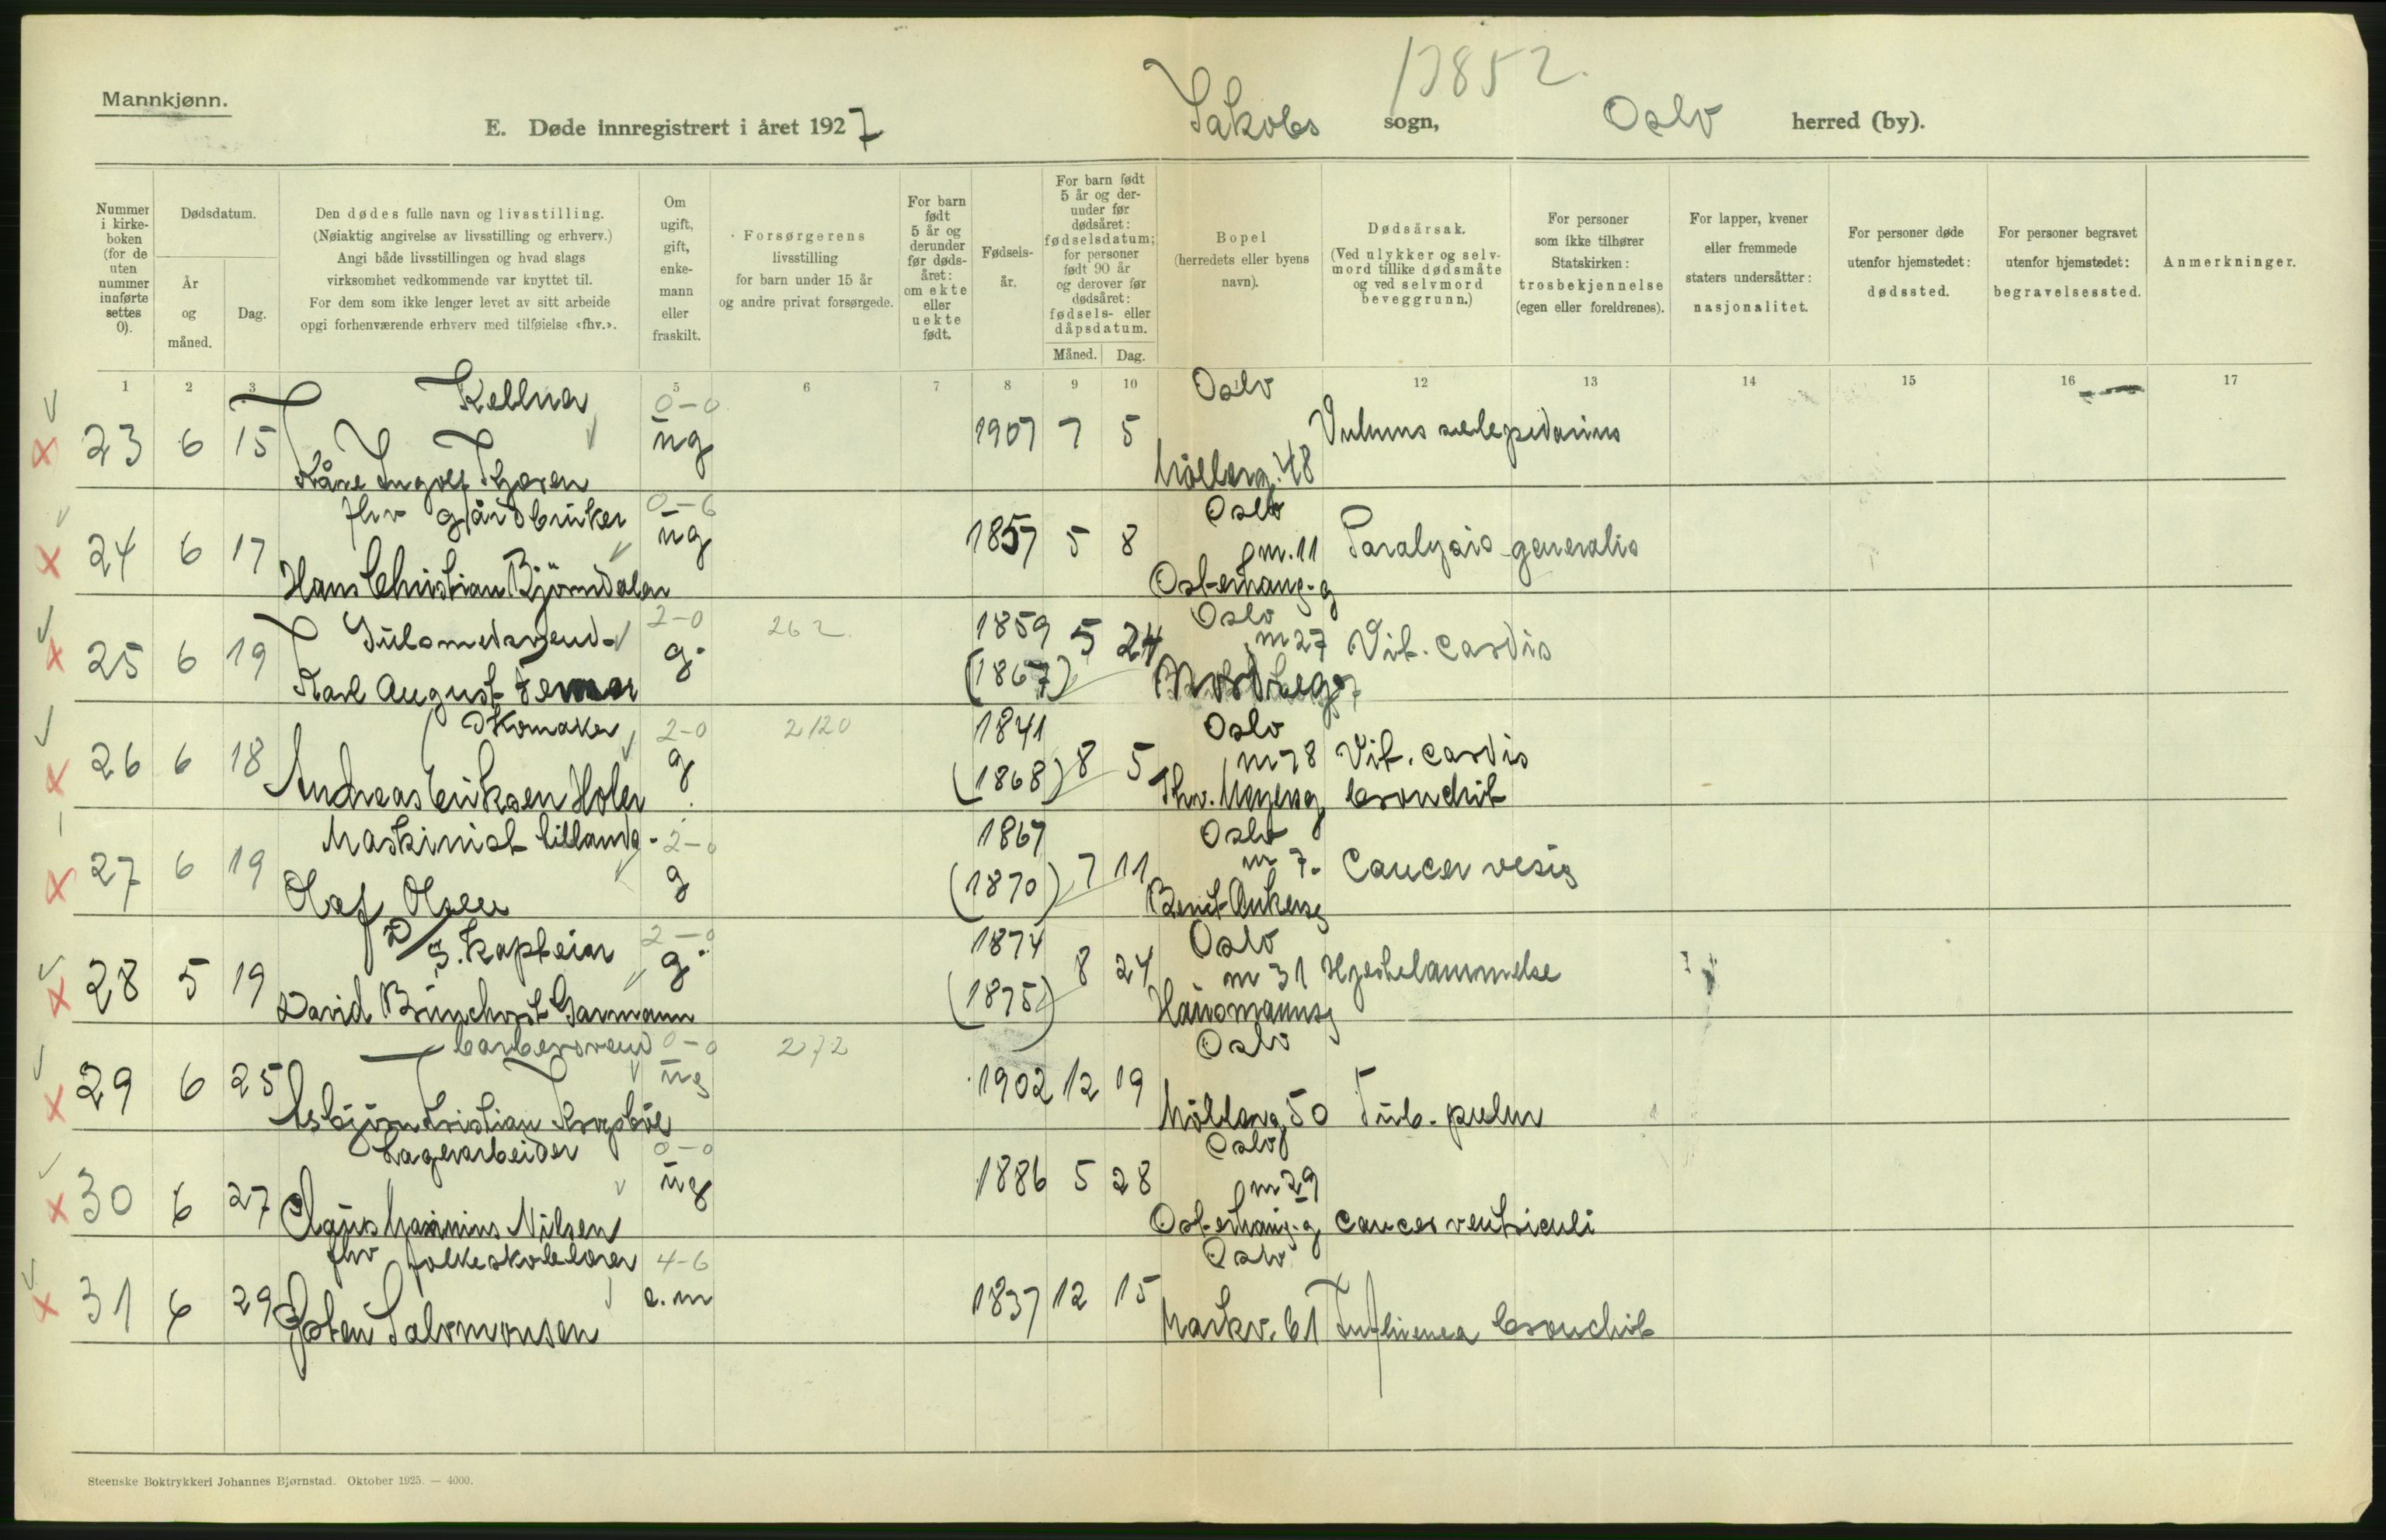 17852.
Mannkjønn.
E. Døde innregistrert i året 1927 Jakobs sogn, Oslo herred (by).
Nummer i kirke-boken (for de uten nummer innførte settes 0).
Dødsdatum.
År og måned.
Dag.
Den dødes fulle navn og livsstilling.
(Nøiaktig angivelse av livsstilling og erhverv.)
Angi både livsstillingen og hvad slags
virksomhet vedkommende var knyttet til.
For dem som ikke lenger levet av sitt arbeide
opgi forhenværende erhverv med tilføielse «fhv.».
Om ugift, gift, enke-mann eller fraskilt.
Forsørgerens
livsstilling
for barn under 15 år
og andre privat forsørgede.
For barn født 5 år og derunder før døds-året: om ekte eller uekte født.
Fødsels-år.
For barn født 5 år og der-under før dødsåret: fødselsdatum; for personer født 90 år og derover før dødsåret: fødsels- eller dåpsdatum.
Måned. Dag.
Bopel
(herredets eller byens
navn).
Dødsårsak.
(Ved ulykker og selv-
mord tillike dødsmåte
og ved selvmord
beveggrunn.)
For personer
som ikke tilhører
Statskirken:
trosbekjennelse
(egen eller foreldrenes).
For lapper, kvener
eller fremmede
staters undersåtter:
nasjonalitet.
For personer døde
utenfor hjemstedet:
dødssted.
For personer begravet
utenfor hjemstedet:
begravelsessted.
Anmerkninger.
1 2 3 5 6 7 8 9 10 12 13 14 15 16 17
Kellner 0-0 Oslo
23 6 15 ug 1907 7 5
Kåre Ingolf Møllerg. 48
fhv gårdbruker 0-6 Oslo
24 6 17 ug 1857 5 8 nr. 11 Paralysis generalis
Hans Christian Björndalen Osterhausg
Gulsmedsvend 2-0 262 1859 Oslo
25 6 19 g. 5 24 nr 27 Vit. cordis
Karl August (1867)
Skomaker 2-0 2120 1841 Oslo
26 6 18 g 8 5 nr 78 Vit. cordis
Andreas Eriksen Holer (1868) Thv. Meyersg bronchit
Maskinist 2-0 1867 Oslo
27 6 19 g 7 11 nr 7. Cancer vesic
Olaf Olsen (1870) Bernt Ankersg
D/S. Kaptein 2-0 1874 Oslo
28 5 19 g. 8 24 nr 31 Hjertelammelse
David Bunchorst Garmann (1875) Hausmannsg
barbersvend 0-0 272 Oslo
29 6 25 ug 1902 12 19
Asbjörn Kristian Møllerg 50 Tub. pulm
Lagerarbeider 0-0 Oslo
30 6 27 ug 1886 5 28 nr 29
Claus Nilsen Osterhausg cancer ventriculi
fhv folkeskolelærer 4-6 Oslo
31 6 29 e.m 1837 12 15
Salomonsen Markv. 61 Influensa bronchit
Steenske Boktrykkeri Johannes Bjørnstad. Oktober 1925. — 4000.